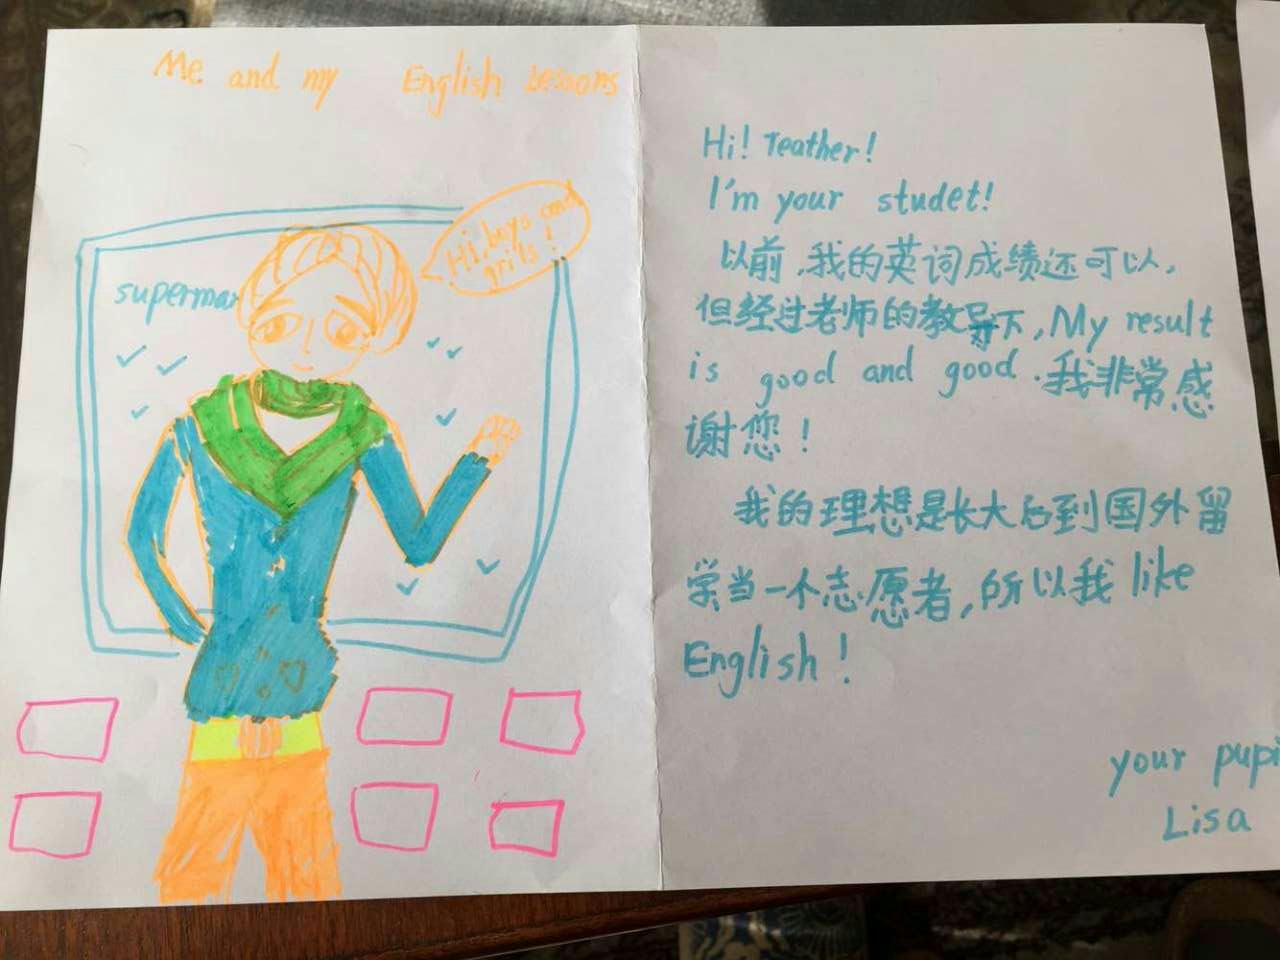 Me and my English Lessons
Hi, boys and
grils!
supermar
Hi! Teather!
I'm your studet!
以前,我的英词成绩还可以,
但经过老师的教导下,My result
is good and good.我非常感
谢您!
我的理想是长大后到国外留
学当一个志愿者,所以我like
English!
your pupi
Lisa